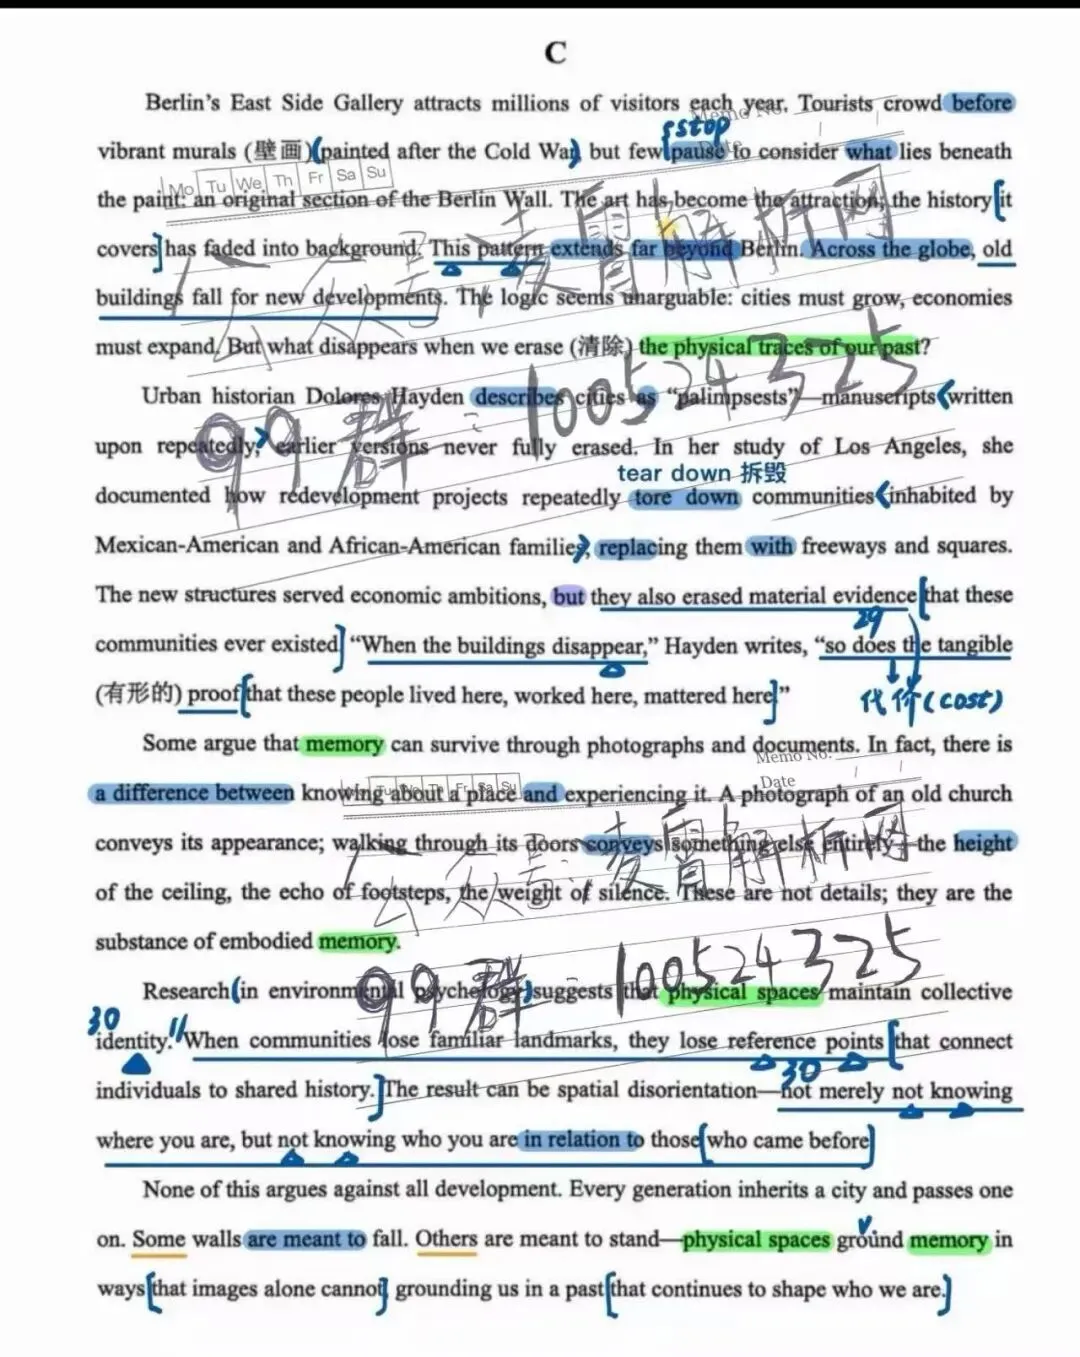 C
Berlin's East Side Gallery attracts millions of visitors each year. Tourists crowd before
Memo No.
stop
Date
vibrant murals (壁画) painted after the Cold War, but few pause to consider what lies beneath
Mo Tu We Th Fr Sa Su
the paint: an original section of the Berlin Wall. The art has become the attraction; the history it
covers has faded into background. This pattern extends far beyond Berlin. Across the globe, old
公众号:麦胃解析网
buildings fall for new developments. The logic seems unarguable: cities must grow, economies
must expand. But what disappears when we erase (清除) the physical traces of our past?
Urban historian Dolores Hayden describes cities as “palimpsests”—manuscripts written
99群:100524325
upon repeatedly, earlier versions never fully erased. In her study of Los Angeles, she
tear down 拆毁
documented how redevelopment projects repeatedly tore down communities inhabited by
Mexican-American and African-American families, replacing them with freeways and squares.
The new structures served economic ambitions, but they also erased material evidence that these
29
communities ever existed. “When the buildings disappear,” Hayden writes, “so does the tangible
(有形的) proof that these people lived here, worked here, mattered here.”
代价(cost)
Some argue that memory can survive through photographs and documents. In fact, there is
Memo No.
Date
a difference between knowing about a place and experiencing it. A photograph of an old church
Mo Tu We Th Fr Sa Su
conveys its appearance; walking through its doors conveys something else entirely—the height
公众号:麦胃解析网
of the ceiling, the echo of footsteps, the weight of silence. These are not details; they are the
substance of embodied memory.
99群:100524325
Research in environmental psychology suggests that physical spaces maintain collective
30
identity. When communities lose familiar landmarks, they lose reference points that connect
30
individuals to shared history. The result can be spatial disorientation—not merely not knowing
where you are, but not knowing who you are in relation to those who came before.
None of this argues against all development. Every generation inherits a city and passes one
on. Some walls are meant to fall. Others are meant to stand—physical spaces ground memory in
v
ways that images alone cannot, grounding us in a past that continues to shape who we are.